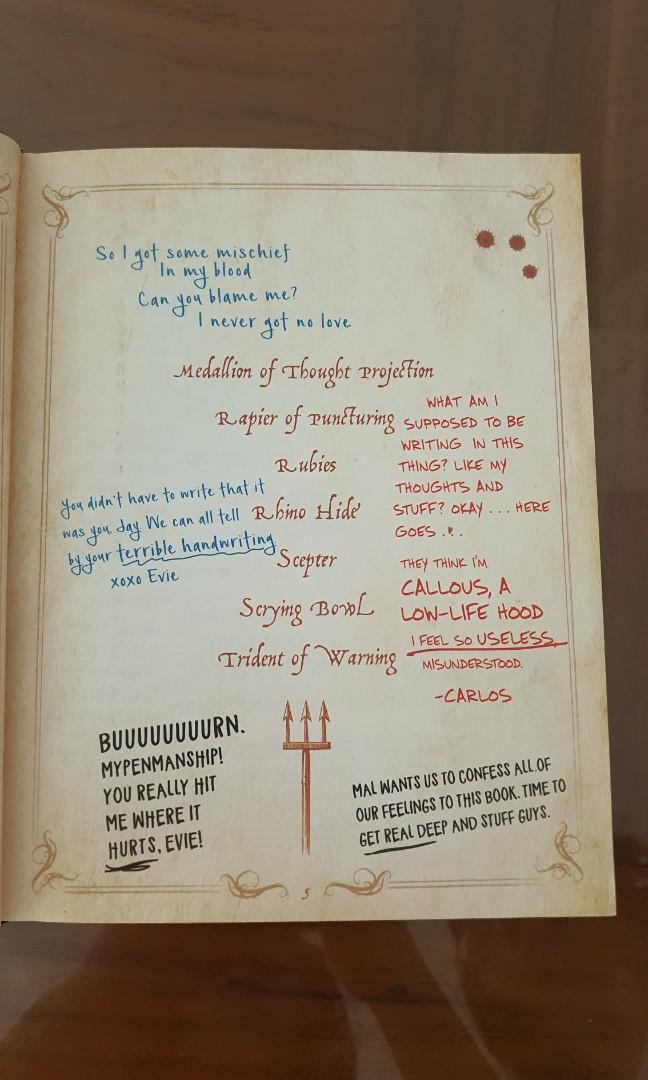 So I got some mischief
In my blood
Can you blame me?
I never got no love
Medallion of Thought Projection
Rapier of Puncturing
Rubies
Rhino Hide
Scepter
Scrying Bowl
Trident of Warning
WHAT AM I
SUPPOSED TO BE
WRITING IN THIS
THING? LIKE MY
THOUGHTS AND
STUFF? OKAY . . . HERE
GOES . . .
THEY THINK I'M
CALLOUS, A
LOW-LIFE HOOD
I FEEL SO USELESS,
MISUNDERSTOOD.
-CARLOS
You didn't have to write that it
was you Jay. We can all tell
by your terrible handwriting.
xoxo Evie
BUUUUUUUURN.
MYPENMANSHIP!
YOU REALLY HIT
ME WHERE IT
HURTS, EVIE!
MAL WANTS US TO CONFESS ALL OF
OUR FEELINGS TO THIS BOOK. TIME TO
GET REAL DEEP AND STUFF GUYS.
5